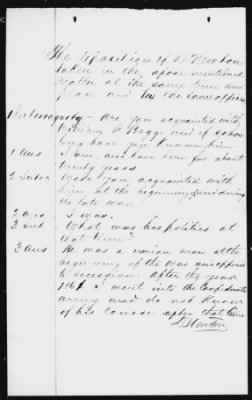 The deposition of D Newton
taken in the above mentioned
matter at the same time and
place and by the same officer
1 Interrogatory - Are you acquainted with
William Boggs and if so how
long have you known him
1 Ans I am and have been for about
twenty years
2 Inter Were you acquainted with
him at the beginning and during
the late war
2 Ans I was.
3 Int What was his politics at
that time?
3 Ans He was a union man at the
beginning of the war and opposed
to secession. After the year
1861 I went into the Confederate
army and do not know
of his course after that time
D Newton